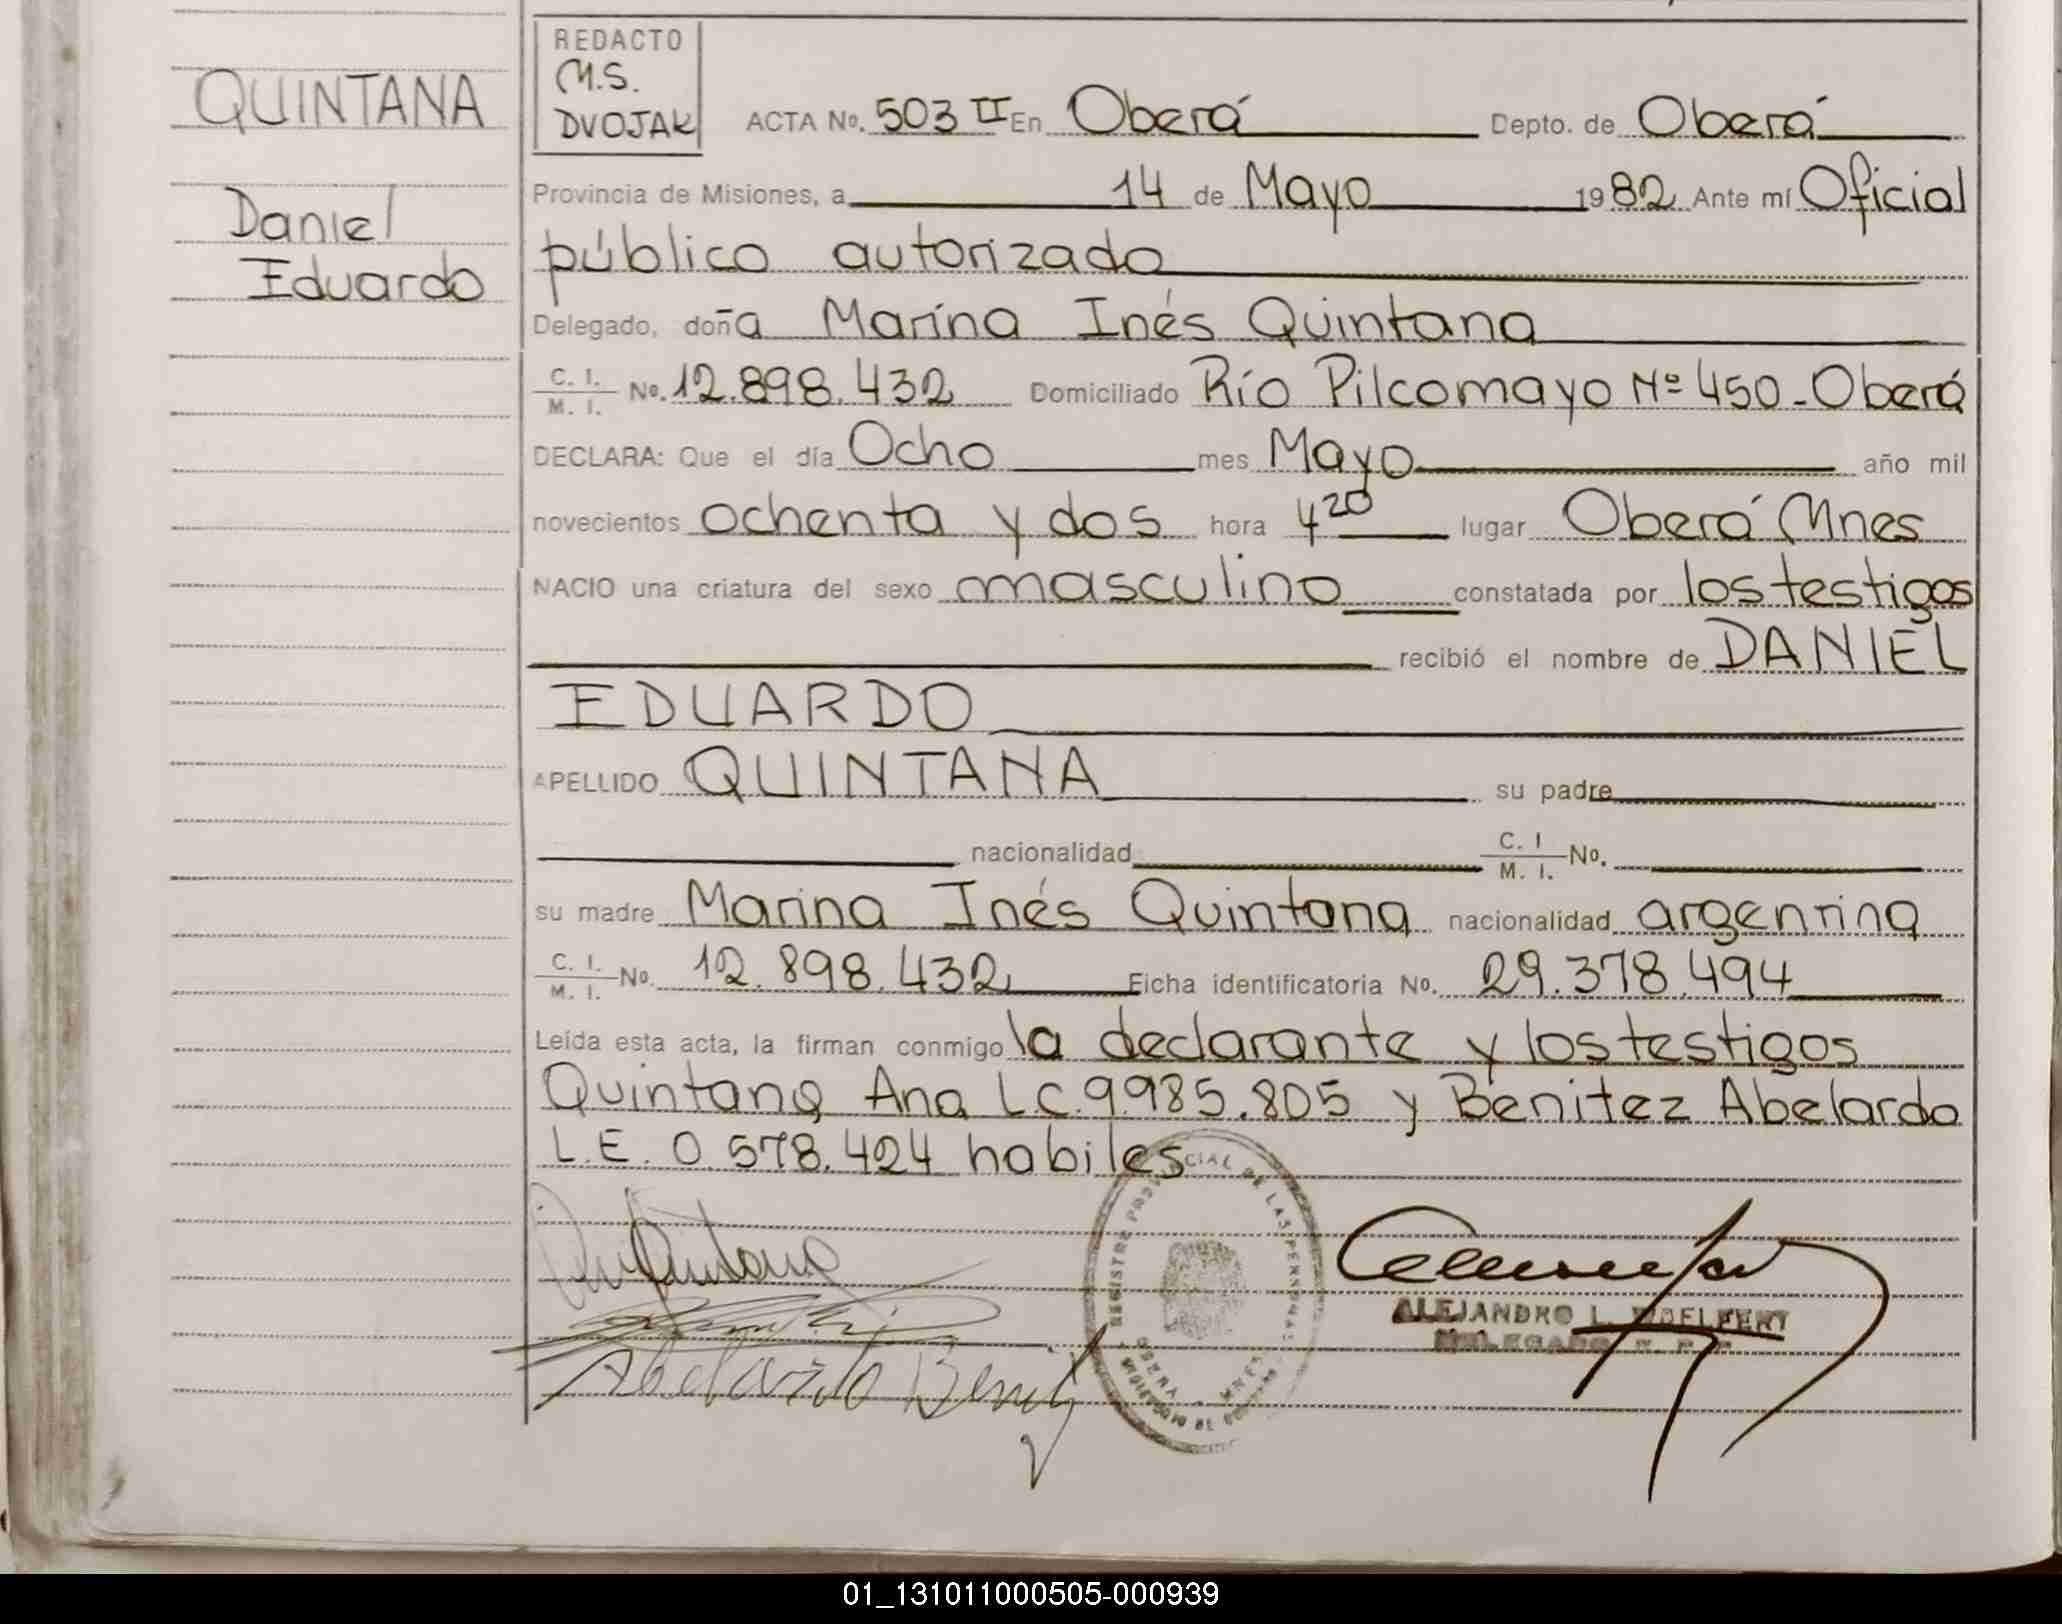 QUINTANA
Daniel
Eduardo
REDACTO
M.S.
DVOJAK
ACTA No. 503 II En Oberá Depto. de Oberá
Provincia de Misiones, a 14 de Mayo 1982 Ante mí Oficial
público autorizado
Delegado, doña Marina Inés Quintana
C. I. / M. I. No. 12.898.432 Domiciliado Río Pilcomayo Nº 450 - Oberá
DECLARA: Que el día Ocho mes Mayo año mil
novecientos ochenta y dos hora 4 20 lugar Oberá Mnes
NACIO una criatura del sexo masculino constatada por los testigos
recibió el nombre de DANIEL
EDUARDO
APELLIDO QUINTANA su padre
nacionalidad C. I / M. I. No.
su madre Marina Inés Quintana nacionalidad argentina
C. I. / M. I. No. 12.898.432 Ficha identificatoria No. 29.378.494
Leída esta acta, la firman conmigo la declarante y los testigos
Quintana Ana L.C. 9.985.805 y Benitez Abelardo
L.E. 0.578.424 habiles
Quintana
Abelardo Benitez
REGISTRO PROVINCIAL DE LAS PERSONAS
OBERA - MNES
ALEJANDRO L.
DELEGADO
01_131011000505-000939